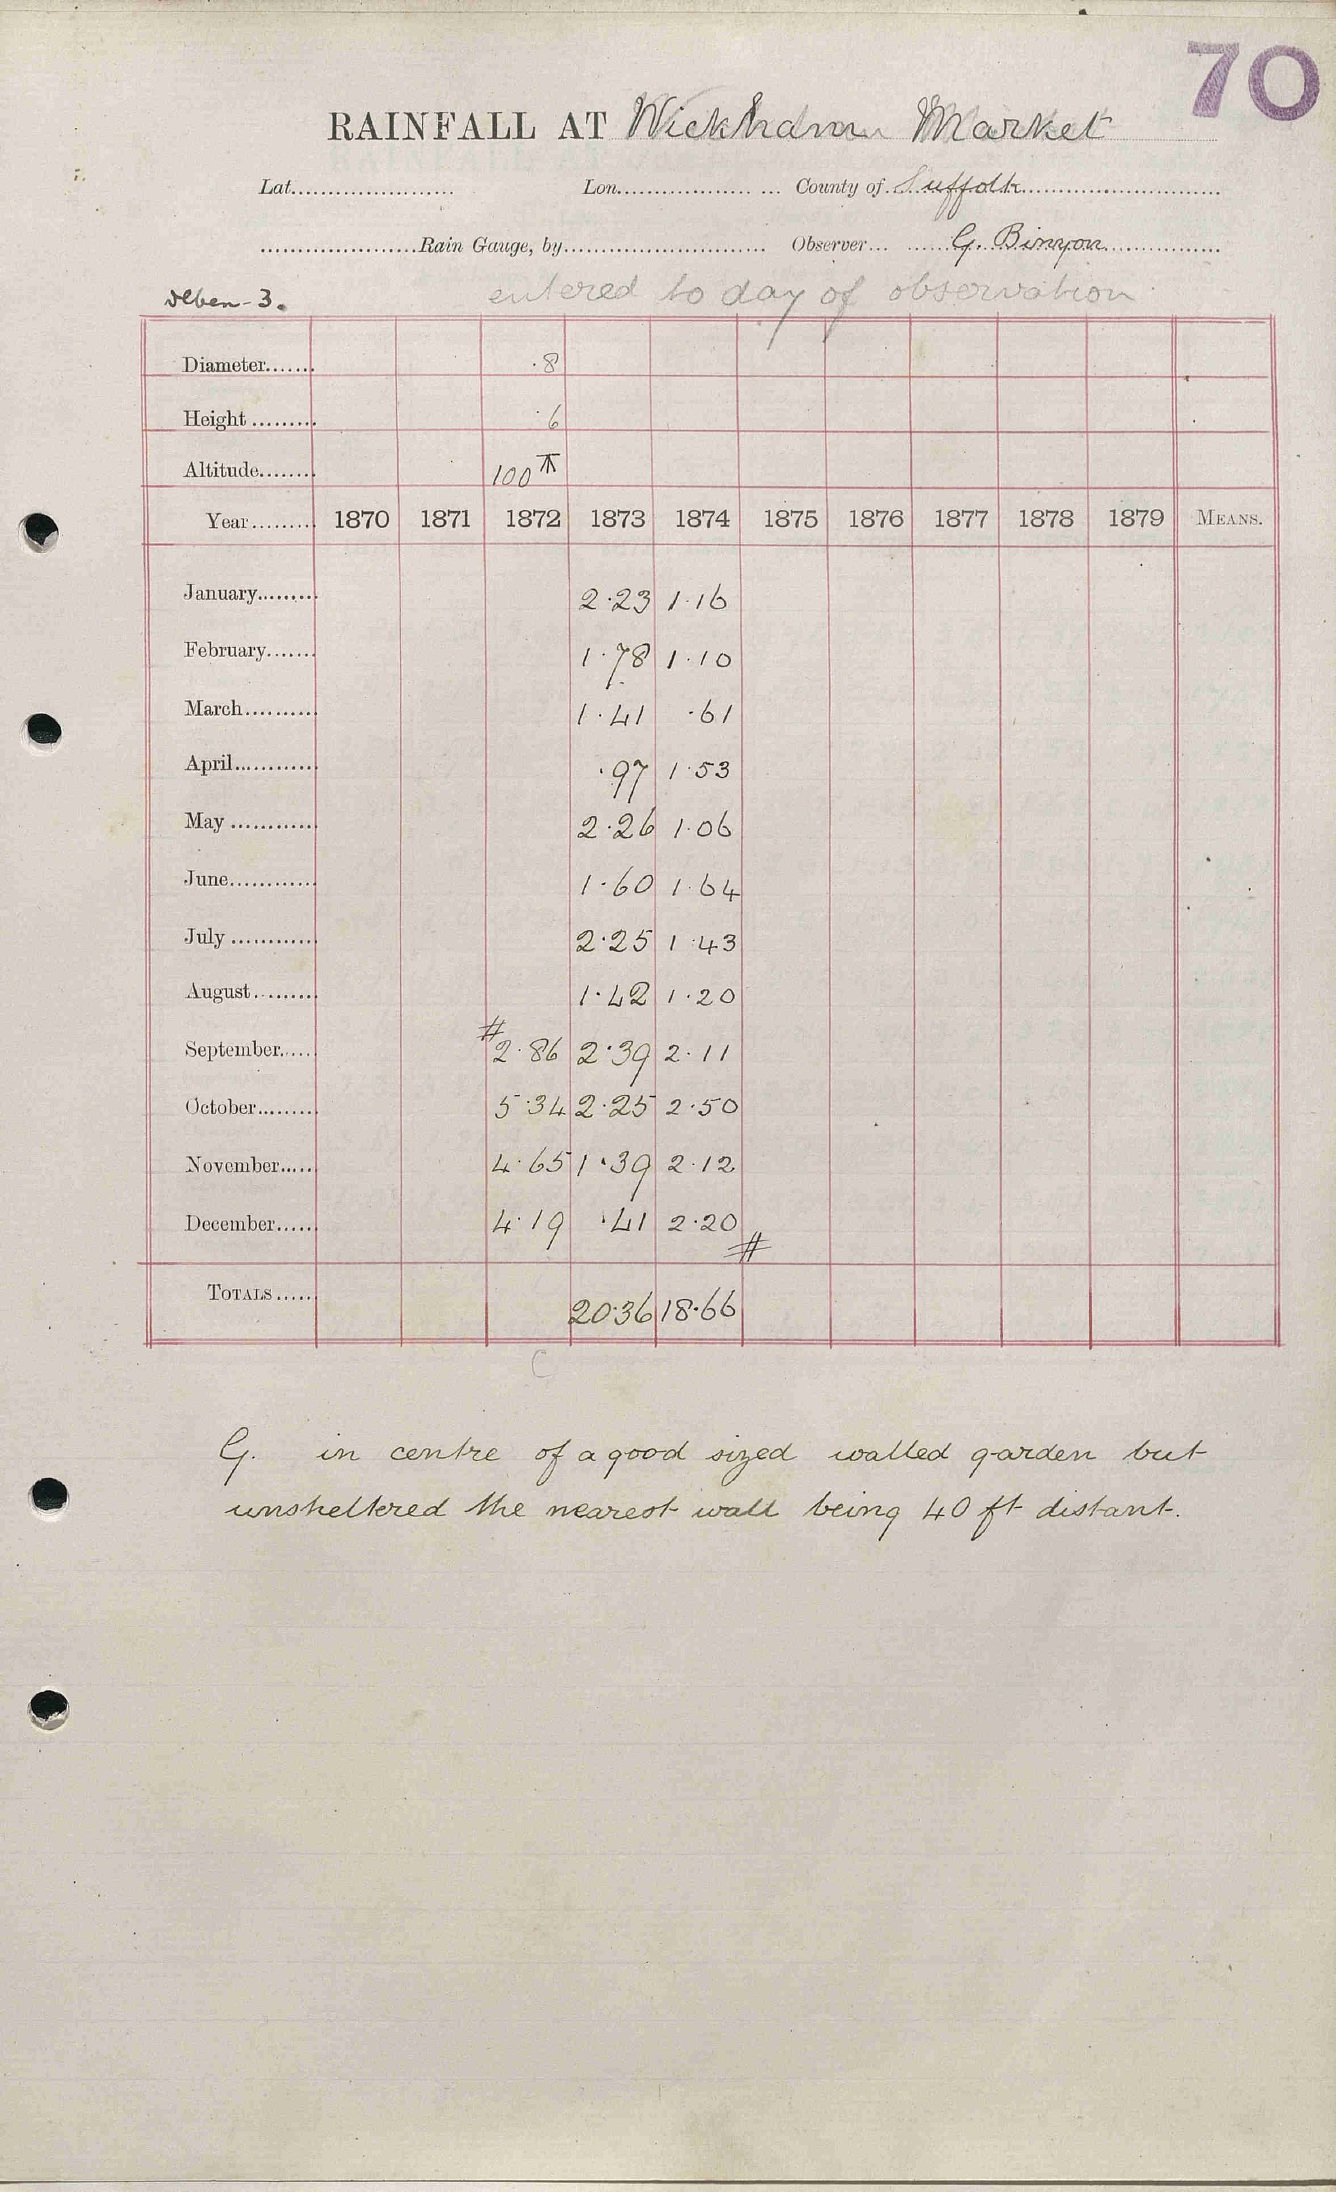 70
RAINFALL AT Wickham Market
Lat...................... Lon................... ... County of Suffolk
.....................Rain Gauge, by........................... Observer... G. Binyon
Deben-3. entered to day of observation
Diameter....... ·8
Height ......... ·6
Altitude........ 100
Year......... 1870 1871 1872 1873 1874 1875 1876 1877 1878 1879 MEANS.
January......... 2·23 1·16
February....... 1·78 1·10
March.......... 1·41 ·61
April............ ·97 1·53
May ............ 2·26 1·06
June............ 1·60 1·64
July ............ 2·25 1·43
August......... 1·42 1·20
September..... # 2·86 2·39 2·11
October........ 5·34 2·25 2·50
November..... 4·65 1·39 2·12
December..... 4·19 ·41 2·20 #
TOTALS ..... 20·36 18·66
C
G. in centre of a good sized walled garden but
unsheltered the nearest wall being 40 ft distant.